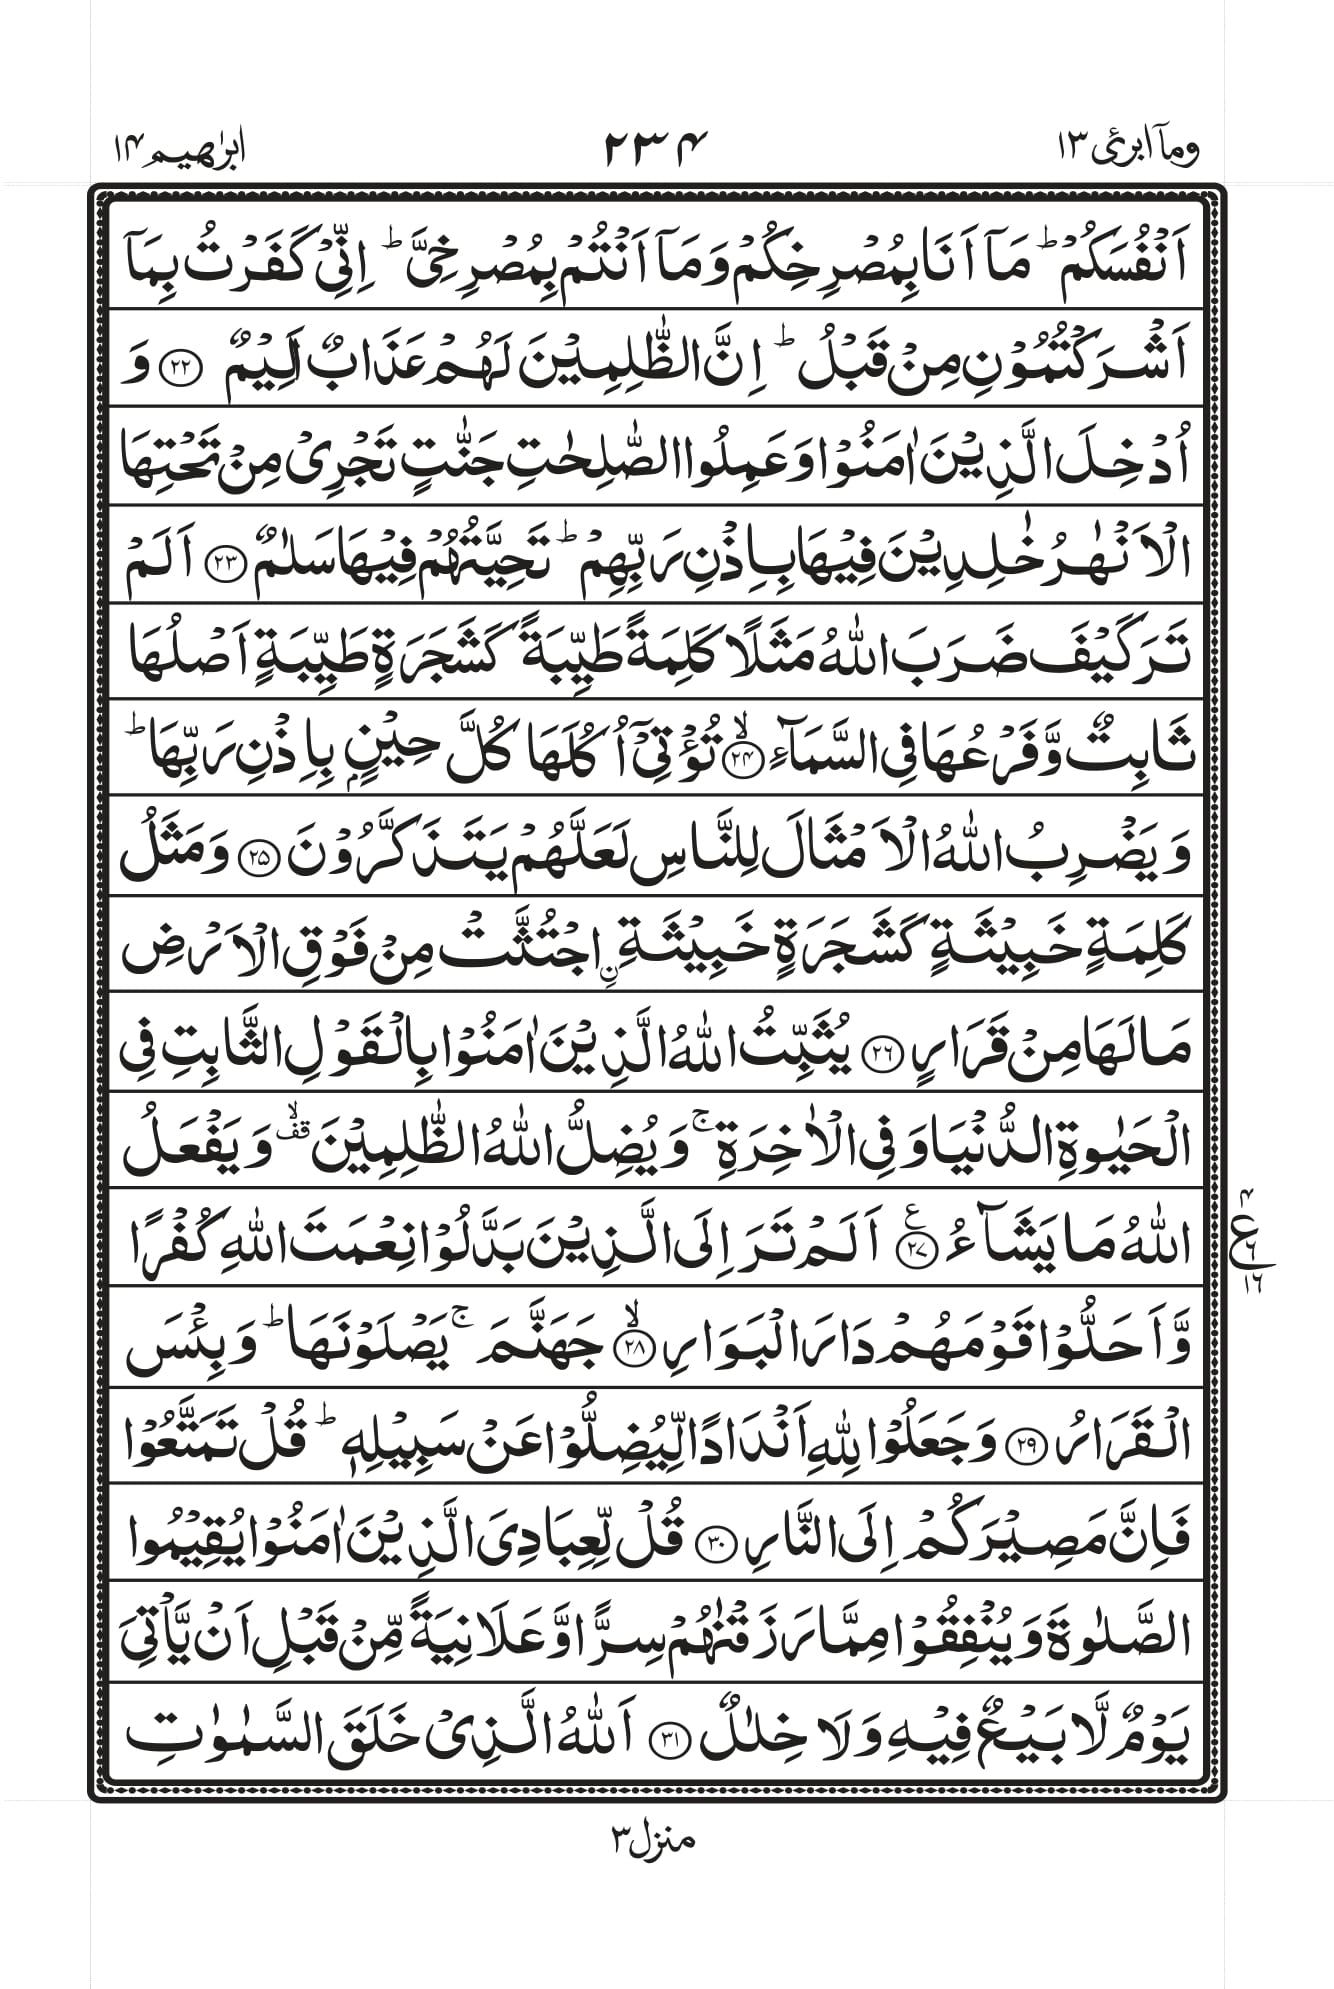 وما ابرئ ١٣
٢٣٤
ابرٰهيم ١٤
اَنْفُسَكُمْ ؕ مَاۤ اَنَا بِمُصْرِخِكُمْ وَمَاۤ اَنْتُمْ بِمُصْرِخِیَّ ؕ اِنِّیْ كَفَرْتُ بِمَاۤ
اَشْرَكْتُمُوْنِ مِنْ قَبْلُ ؕ اِنَّ الظّٰلِمِیْنَ لَهُمْ عَذَابٌ اَلِیْمٌ ﴿۲۲﴾ وَ
اُدْخِلَ الَّذِیْنَ اٰمَنُوْا وَعَمِلُوا الصّٰلِحٰتِ جَنّٰتٍ تَجْرِیْ مِنْ تَحْتِهَا
الْاَنْهٰرُ خٰلِدِیْنَ فِیْهَا بِاِذْنِ رَبِّهِمْ ؕ تَحِیَّتُهُمْ فِیْهَا سَلٰمٌ ﴿۲۳﴾ اَلَمْ
تَرَ كَیْفَ ضَرَبَ اللّٰهُ مَثَلًا كَلِمَةً طَیِّبَةً كَشَجَرَةٍ طَیِّبَةٍ اَصْلُهَا
ثَابِتٌ وَّفَرْعُهَا فِی السَّمَآءِ ﴿۲۴﴾ۙ تُؤْتِیْۤ اُكُلَهَا كُلَّ حِیْنٍۭ بِاِذْنِ رَبِّهَا ؕ
وَیَضْرِبُ اللّٰهُ الْاَمْثَالَ لِلنَّاسِ لَعَلَّهُمْ یَتَذَكَّرُوْنَ ﴿۲۵﴾ وَمَثَلُ
كَلِمَةٍ خَبِیْثَةٍ كَشَجَرَةٍ خَبِیْثَةِ ِ۟اجْتُثَّتْ مِنْ فَوْقِ الْاَرْضِ
مَا لَهَا مِنْ قَرَارٍ ﴿۲۶﴾ یُثَبِّتُ اللّٰهُ الَّذِیْنَ اٰمَنُوْا بِالْقَوْلِ الثَّابِتِ فِی
الْحَیٰوةِ الدُّنْیَا وَفِی الْاٰخِرَةِ ۚ وَیُضِلُّ اللّٰهُ الظّٰلِمِیْنَ ۙ۫ وَیَفْعَلُ
اللّٰهُ مَا یَشَآءُ ﴿۲۷﴾ع اَلَمْ تَرَ اِلَی الَّذِیْنَ بَدَّلُوْا نِعْمَتَ اللّٰهِ كُفْرًا
٤
ع
٦
١٦
وَّاَحَلُّوْا قَوْمَهُمْ دَارَ الْبَوَارِ ﴿۲۸﴾ۙ جَهَنَّمَ ۚ یَصْلَوْنَهَا ؕ وَبِئْسَ
الْقَرَارُ ﴿۲۹﴾ وَجَعَلُوْا لِلّٰهِ اَنْدَادًا لِّیُضِلُّوْا عَنْ سَبِیْلِهٖ ؕ قُلْ تَمَتَّعُوْا
فَاِنَّ مَصِیْرَكُمْ اِلَی النَّارِ ﴿۳۰﴾ قُلْ لِّعِبَادِیَ الَّذِیْنَ اٰمَنُوْا یُقِیْمُوا
الصَّلٰوةَ وَیُنْفِقُوْا مِمَّا رَزَقْنٰهُمْ سِرًّا وَّعَلَانِیَةً مِّنْ قَبْلِ اَنْ یَّاْتِیَ
یَوْمٌ لَّا بَیْعٌ فِیْهِ وَلَا خِلٰلٌ ﴿۳۱﴾ اَللّٰهُ الَّذِیْ خَلَقَ السَّمٰوٰتِ
منزل ٣